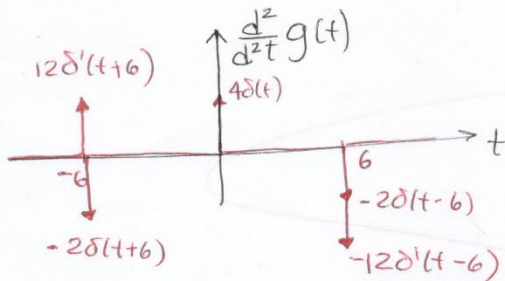 d²/d²t g(t)
12δ'(t+6)
4δ(t)
t
-6
6
-2δ(t-6)
-2δ(t+6)
-12δ'(t-6)